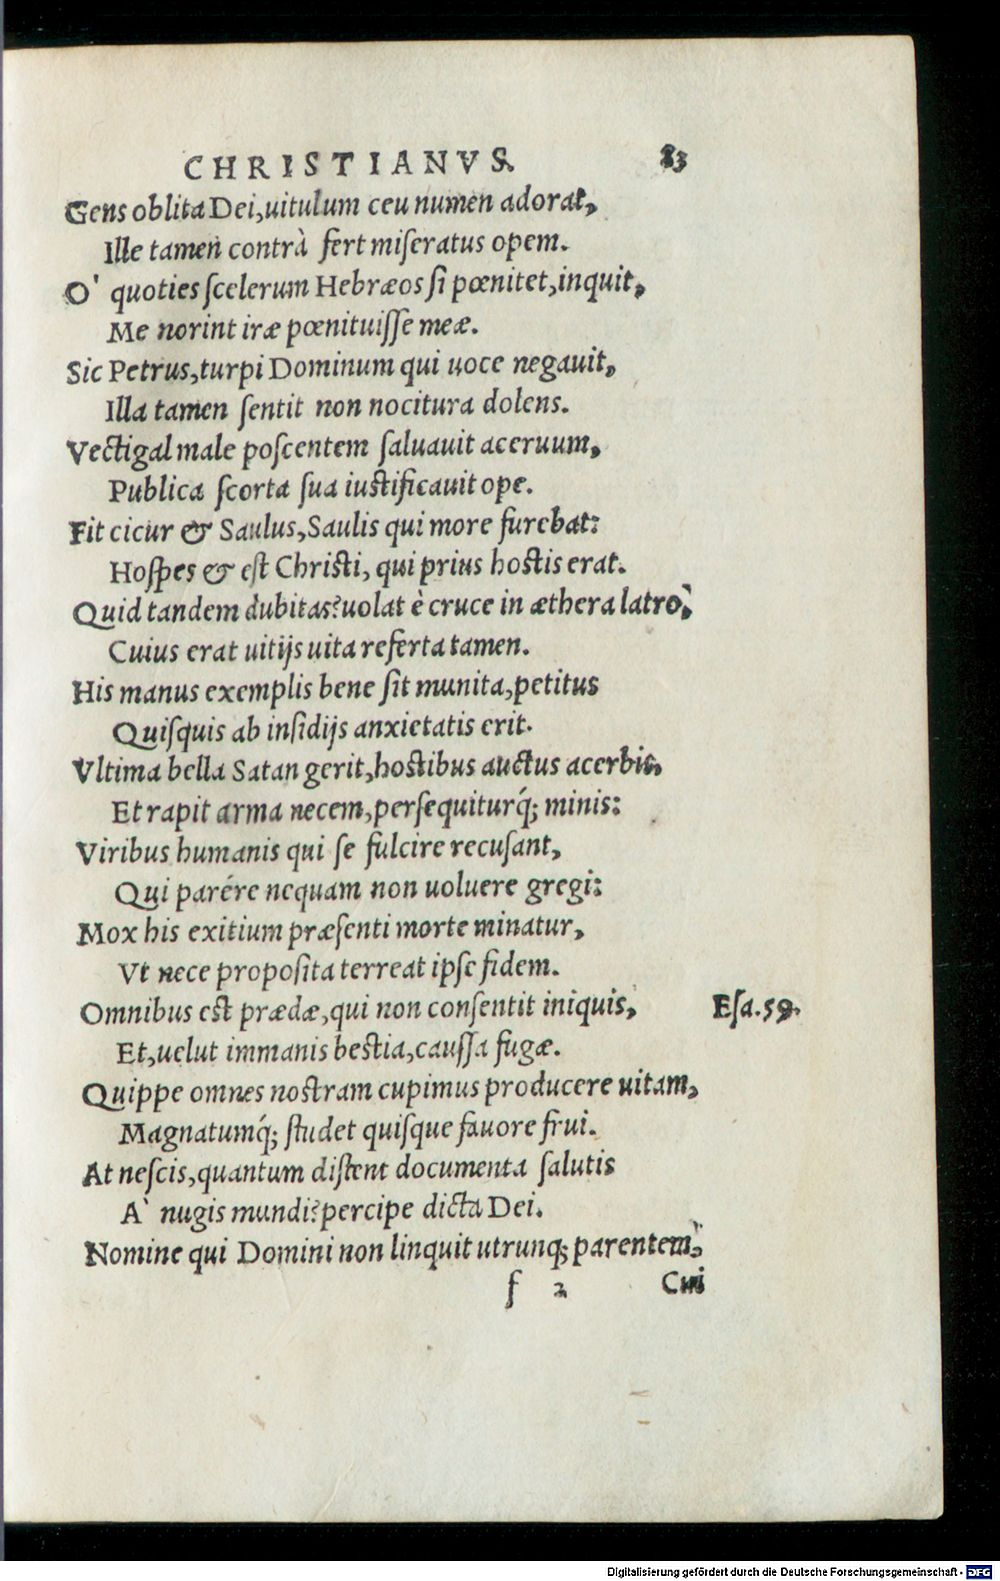 CHRISTIANVS. 83
Gens oblita Dei, uitulum ceu numen adorat,
Ille tamen contrà fert miſeratus opem.
O' quoties ſcelerum Hebræos ſi pœnitet, inquit,
Me norint iræ pœnituiſſe meæ.
Sic Petrus, turpi Dominum qui uoce negauit,
Illa tamen ſentit non nocitura dolens.
Vectigal male poſcentem ſaluauit aceruum,
Publica ſcorta ſua iuſtificauit ope.
Fit cicur & Saulus, Saulis qui more furebat:
Hoſpes & eſt Chriſti, qui prius hoſtis erat.
Quid tandem dubitas? uolat è cruce in æthera latro,
Cuius erat uitijs uita referta tamen.
His manus exemplis bene ſit munita, petitus
Quiſquis ab inſidijs anxietatis erit.
Vltima bella Satan gerit, hoſtibus auctus acerbis,
Et rapit arma necem, perſequiturq́; minis:
Viribus humanis qui ſe fulcire recuſant,
Qui parére nequam non uoluere gregi:
Mox his exitium præſenti morte minatur,
Vt nece propoſita terreat ipſe fidem.
Omnibus eſt prædæ, qui non conſentit iniquis, Eſa. 59.
Et, uelut immanis beſtia, cauſſa fugæ.
Quippe omnes noſtram cupimus producere uitam,
Magnatumq́; ſtudet quiſque fauore frui.
At neſcis, quantum diſtent documenta ſalutis
A' nugis mundi? percipe dicta Dei.
Nomine qui Domini non linquit utrunq; parentem,
f 2 Cui
Digitalisierung gefördert durch die Deutsche Forschungsgemeinschaft - DFG